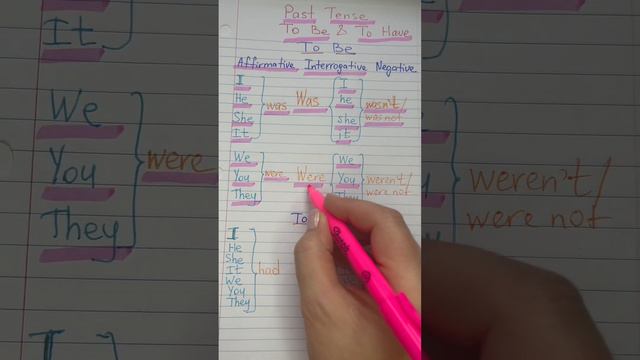 Past Tense
To Be & To Have
To Be
Affirmative Interrogative Negative
I
He
She
It
was
Was
I
he
she
it
wasn't/
was not
We
You
They
were
Were
We
You
They
weren't/
were not
To
I
He
She
It
We
You
They
had
It
We
You
They
were
weren't/
were not
I